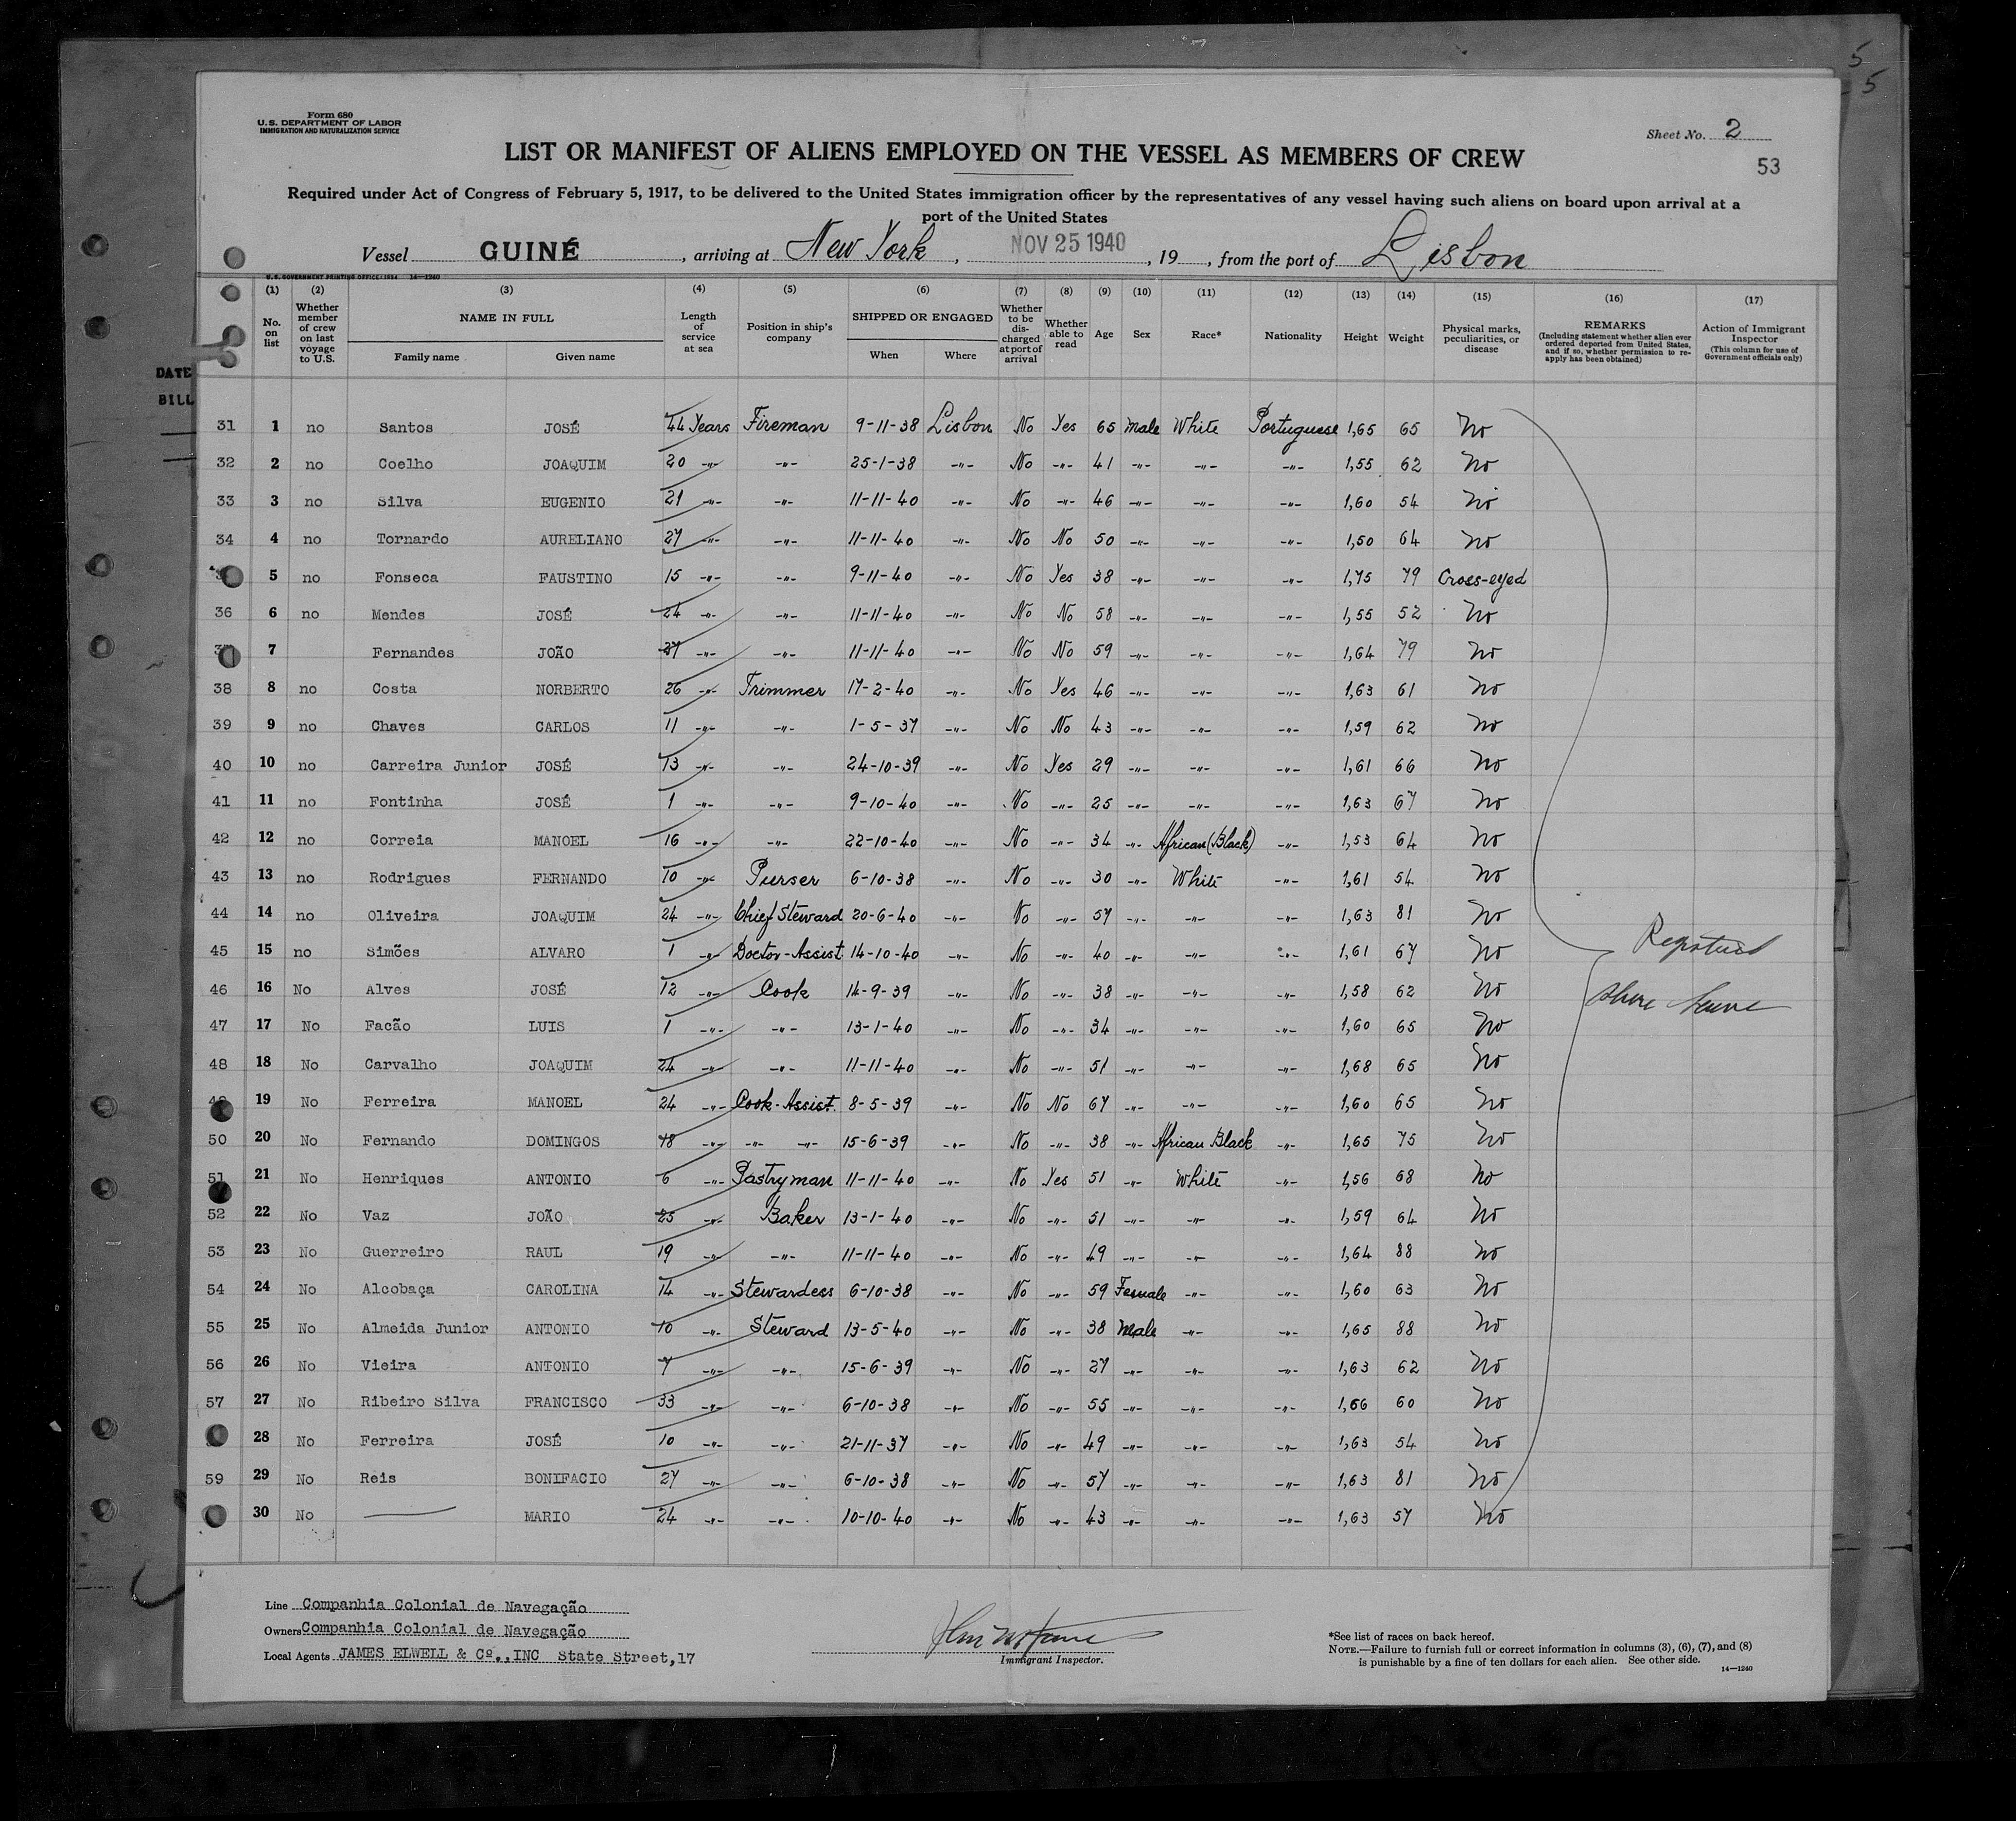 5
5
Form 680
U. S. DEPARTMENT OF LABOR
IMMIGRATION AND NATURALIZATION SERVICE
Sheet No. 2
53
LIST OR MANIFEST OF ALIENS EMPLOYED ON THE VESSEL AS MEMBERS OF CREW
Required under Act of Congress of February 5, 1917, to be delivered to the United States immigration officer by the representatives of any vessel having such aliens on board upon arrival at a
port of the United States
Vessel GUINÉ, arriving at New York, NOV 25 1940, 19, from the port of Lisbon
U. S. GOVERNMENT PRINTING OFFICE: 1934 14—1240
(1) (2) (3) (4) (5) (6) (7) (8) (9) (10) (11) (12) (13) (14) (15) (16) (17)
No. on list
Whether member of crew on last voyage to U.S.
NAME IN FULL
Family name Given name
Length of service at sea
Position in ship's company
SHIPPED OR ENGAGED
When Where
Whether to be discharged at port of arrival
Whether able to read
Age
Sex
Race*
Nationality
Height
Weight
Physical marks, peculiarities, or disease
REMARKS
(Including statement whether alien ever ordered deported from United States, and if so, whether permission to reapply has been obtained)
Action of Immigrant Inspector
(This column for use of Government officials only)
DATE
BILL
31 1 no Santos JOSÉ 44 Years Fireman 9-11-38 Lisbon No Yes 65 Male White Portuguese 1,65 65 No
32 2 no Coelho JOAQUIM 20 -"- -"- 25-1-38 -"- No -"- 41 -"- -"- -"- 1,55 62 No
33 3 no Silva EUGENIO 21 -"- -"- 11-11-40 -"- No -"- 46 -"- -"- -"- 1,60 54 No
34 4 no Tornardo AURELIANO 27 -"- -"- 11-11-40 -"- No No 50 -"- -"- -"- 1,50 64 No
5 no Fonseca FAUSTINO 15 -"- -"- 9-11-40 -"- No Yes 38 -"- -"- -"- 1,75 79 Cross-eyed
36 6 no Mendes JOSÉ 24 -"- -"- 11-11-40 -"- No No 58 -"- -"- -"- 1,55 52 No
7 Fernandes JOÃO 37 -"- -"- 11-11-40 -"- No No 59 -"- -"- -"- 1,64 79 No
38 8 no Costa NORBERTO 26 -"- Trimmer 17-2-40 -"- No Yes 46 -"- -"- -"- 1,63 61 No
39 9 no Chaves CARLOS 11 -"- -"- 1-5-37 -"- No No 43 -"- -"- -"- 1,59 62 No
40 10 no Carreira Junior JOSÉ 13 -"- -"- 24-10-39 -"- No Yes 29 -"- -"- -"- 1,61 66 No
41 11 no Fontinha JOSÉ 1 -"- -"- 9-10-40 -"- No -"- 25 -"- -"- -"- 1,63 67 No
42 12 no Correia MANOEL 16 -"- -"- 22-10-40 -"- No -"- 34 -"- African (Black) -"- 1,53 64 No
43 13 no Rodrigues FERNANDO 10 -"- Purser 6-10-38 -"- No -"- 30 -"- White -"- 1,61 54 No
44 14 no Oliveira JOAQUIM 24 -"- Chief Steward 20-6-40 -"- No -"- 57 -"- -"- -"- 1,63 81 No
45 15 no Simões ALVARO 1 -"- Doctor-Assist. 14-10-40 -"- No -"- 40 -"- -"- -"- 1,61 67 No
46 16 No Alves JOSÉ 12 -"- Cook 14-9-39 -"- No -"- 38 -"- -"- -"- 1,58 62 No
47 17 No Facão LUIS 1 -"- -"- 13-1-40 -"- No -"- 34 -"- -"- -"- 1,60 65 No
48 18 No Carvalho JOAQUIM 24 -"- -"- 11-11-40 -"- No -"- 51 -"- -"- -"- 1,68 65 No
19 No Ferreira MANOEL 24 -"- Cook-Assist. 8-5-39 -"- No No 67 -"- -"- -"- 1,60 65 No
50 20 No Fernando DOMINGOS 18 -"- -"- -"- 15-6-39 -"- No -"- 38 -"- African Black -"- 1,65 75 No
51 21 No Henriques ANTONIO 6 -"- Pastryman 11-11-40 -"- No Yes 51 -"- White -"- 1,56 68 No
52 22 No Vaz JOÃO 25 -"- Baker 13-1-40 -"- No -"- 51 -"- -"- -"- 1,59 64 No
53 23 No Guerreiro RAUL 19 -"- -"- 11-11-40 -"- No -"- 49 -"- -"- -"- 1,64 88 No
54 24 No Alcobaça CAROLINA 14 -"- Stewardess 6-10-38 -"- No -"- 59 Female -"- -"- 1,60 63 No
55 25 No Almeida Junior ANTONIO 10 -"- Steward 13-5-40 -"- No -"- 38 Male -"- -"- 1,65 88 No
56 26 No Vieira ANTONIO 7 -"- -"- 15-6-39 -"- No -"- 27 -"- -"- -"- 1,63 62 No
57 27 No Ribeiro Silva FRANCISCO 33 -"- -"- 6-10-38 -"- No -"- 55 -"- -"- -"- 1,66 60 No
28 No Ferreira JOSÉ 10 -"- -"- 21-11-37 -"- No -"- 49 -"- -"- -"- 1,63 54 No
59 29 No Reis BONIFACIO 27 -"- -"- 6-10-38 -"- No -"- 57 -"- -"- -"- 1,63 81 No
30 No —— MARIO 24 -"- -"- 10-10-40 -"- No -"- 43 -"- -"- -"- 1,63 57 No
Line Companhia Colonial de Navegação
Owners Companhia Colonial de Navegação
Local Agents JAMES ELWELL & Cº., INC State Street,17
Immigrant Inspector.
*See list of races on back hereof.
NOTE.—Failure to furnish full or correct information in columns (3), (6), (7), and (8)
is punishable by a fine of ten dollars for each alien. See other side.
14—1240